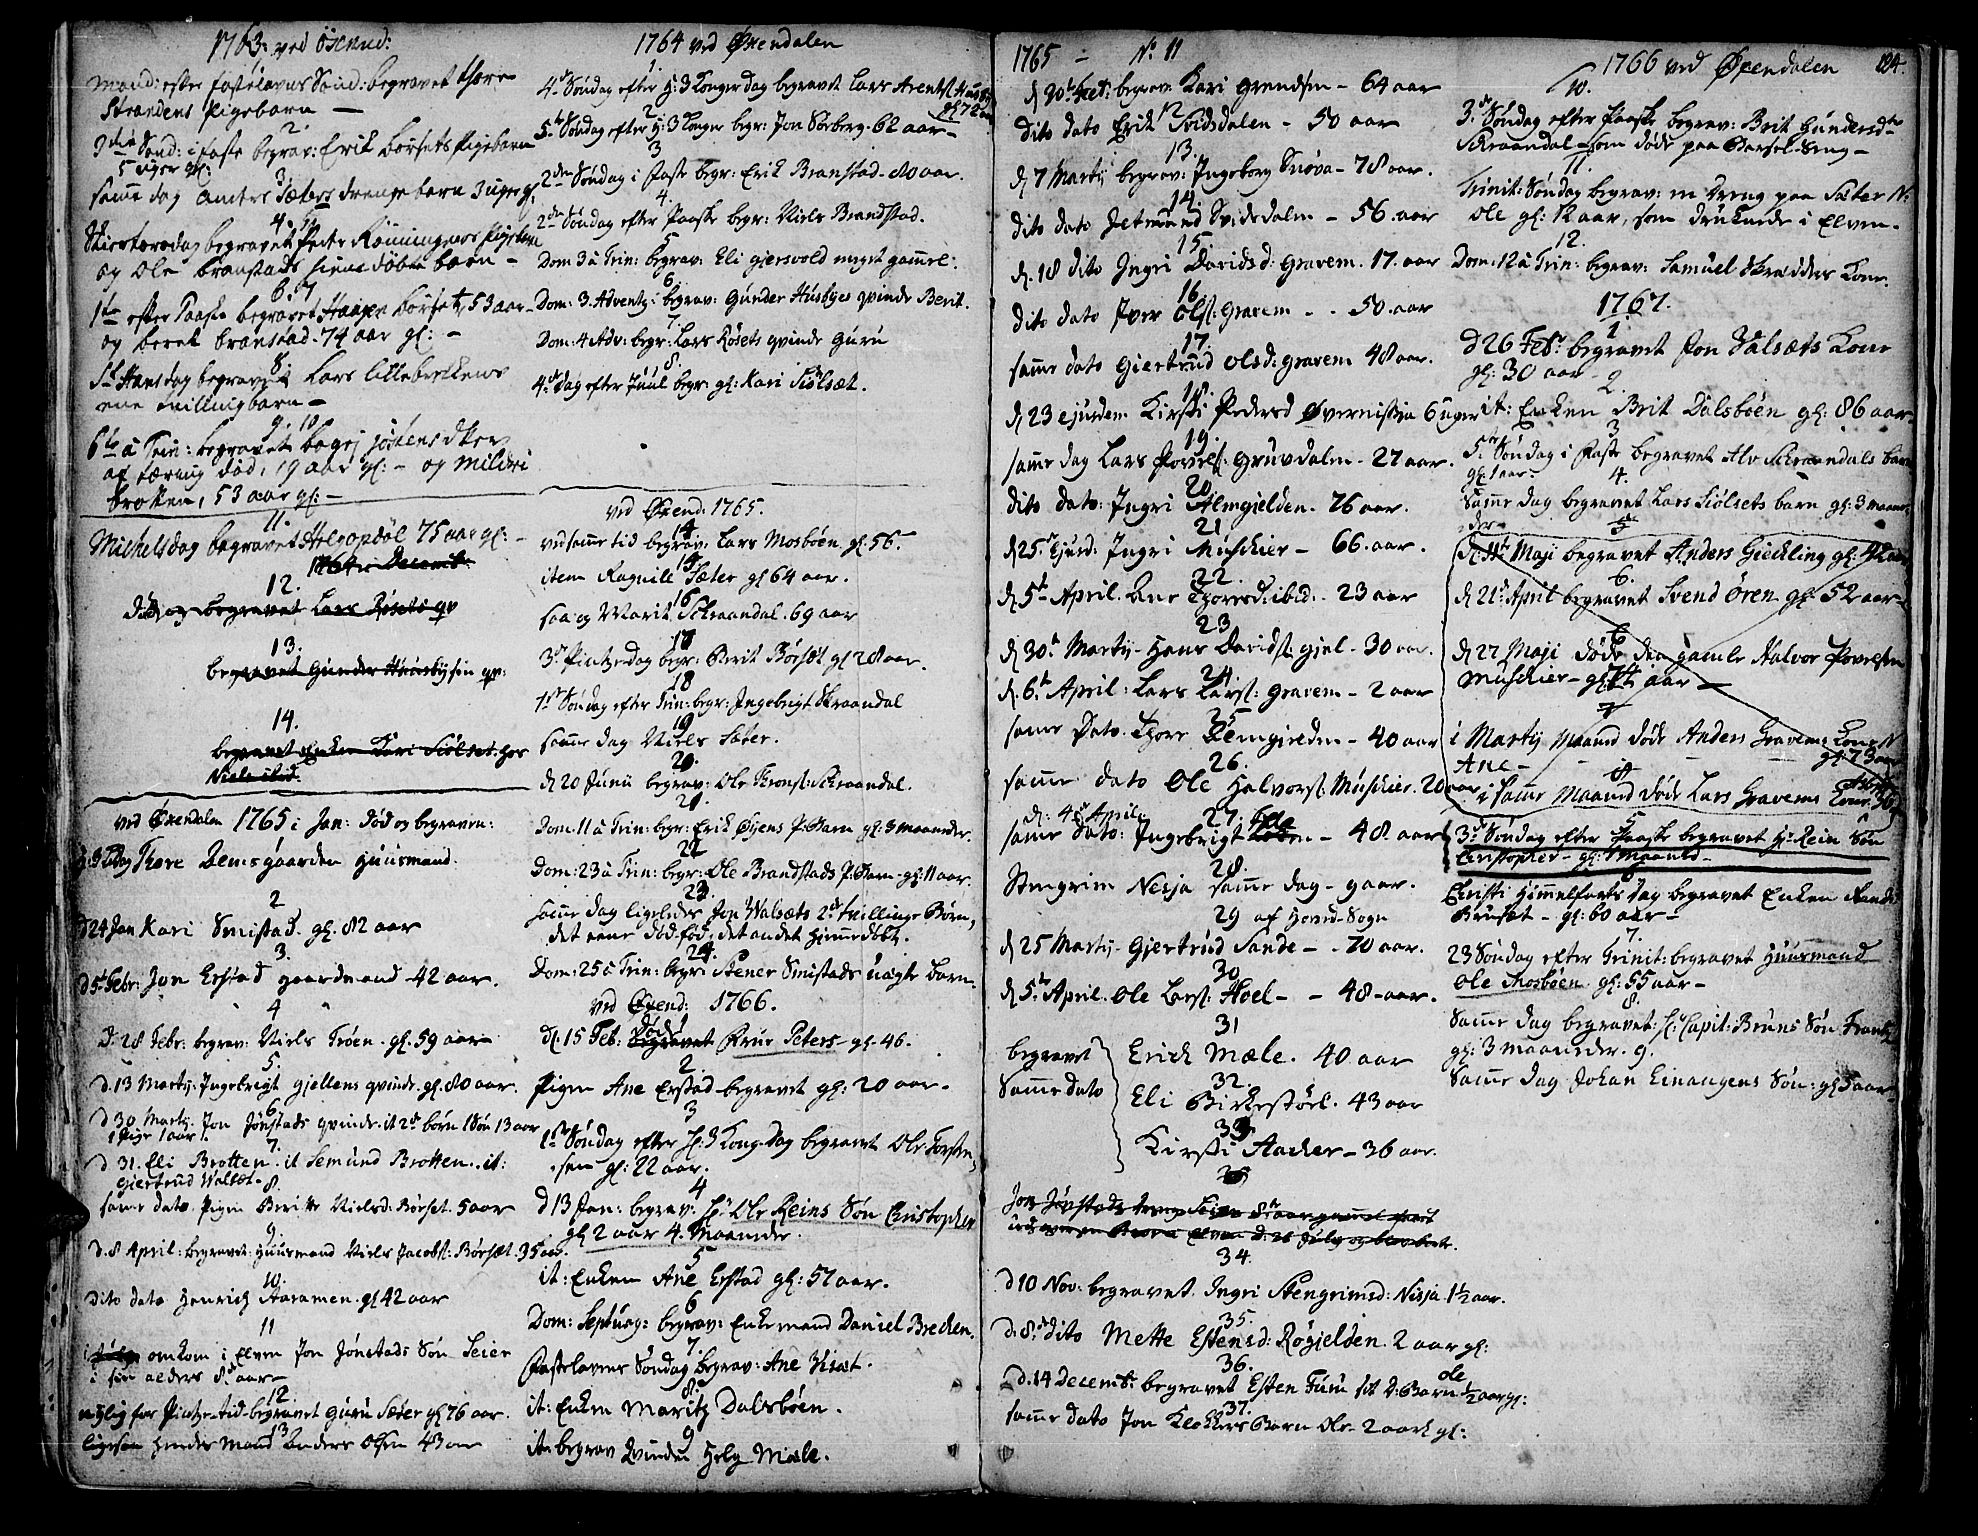 1763: ved Öxend:
Mand: efter fastelavns Sønd: begravet Thore
Strandens Pigebarn —
2.
3die Sønd: i faste begrav: Erik Børsets Pigebarn
5 uger gl:
3.
samme dag Anders Sæters drengebarn 3 uger gl.
4.
Skiertorsdag begravet Peder Rönningens Pigebarn
og Ole Branstads hiemedöbte barn —
6. 7
1te efter Paaske begravet Haagen Börset 53 aar
og Beret Branstad. 74 aar gl: —
8
St Hansdag begravet Lars Lillebrekkens
ene tvillingbarn —
9. 10
6te a Trin: begravet
død, 19 aar gl: — og Mildri
Brotten, 53 aar gl: —
11.
Michelsdag begravet 75 aar gl: —
1764 Decemb:
12.
død og begravet Lars Røsets qv
13.
begravet Gunder Huusbyes qv:
14.
begravet Enken Kari Siölset hos
Niels ibid.
ved Øxendalen 1765 i Jan: død og begraven:
Thore Vermsgaarden Huusmand.
2
d 24 Jan Kari Smistad. gl. 82 aar
3.
d 5te Febr: Jon Erstad gaardmand 42 aar.
4
d. 28 Febr: begrav: Niels Trøen. gl. 59 aar
5.
d. 13 Martij. Ingebrigt Gjellens qvinde. gl. 80 aar.
6
d 30 Martij. Jon Jønstads qvinde. it 2de børn 1 Søn 13 aar
1 Pige 1 aar.
7.
d 31. Eli Brotten. it Semund Brotten. it:
Giertrud Walset.
8.
samme dato. Pigen Beritte Nielsd: Børset. 5 aar
9
d. 8 April: begravet: Huusmand Niels Jacobs: Børset. 35 aar.
10.
Dito dato Henrich Aaramen. gl 42 aar
11
omkom i Elven Jon Jønstads Søn Seier
i sin alders 8de aar —
12.
nylig for Pintze-tid begravet Guru Sæter gl 76 aar.
13
ligesom hendes Mand Anders Olsen 43 aar
1764 ved Øxendalen
1.
4de Søndag efter H: 3 Konger dag begravet Lars Arents: Huusby
gl 72 aar
2
5te Søndag efter H: 3 Konger begr: Jon Sørberg. 62 aar —
3
2den Søndag i Faste begr: Erik Branstad. 80 aar.
4.
2den Søndag efter Paaske begr: Niels Brandstad.
5
Dom 3 a Trin: begrav: Eli Gjersvold meget gammel:
6
Dom: 3. Advent: begrav: Gunder Husbyes qvinde Berit.
7.
Dom: 4 Adv: begr: Lars Røsets qvinde Guru
8.
4de dag efter Juul begr: gl: Kari Siölset.
ved Øxend. 1765.
14
ved samme tid begrav: Lars Mosbøen gl 56.
15
item Ragnille Sæter gl 64 aar.
16
saa og Marit Skraandal. 69 aar
17
3de Pintzedag begr: Berit Børset gl 28 aar.
18
1ste Søndag efter Trin: begr: Ingebrigt Skraandal
19
samme dag Niels Sæter.
20.
d 20 Junii begrav: Ole Trons: Skraandal.
21.
Dom: 11 a Trin: begr: Erik Øyens P. Barn gl: 3 maaneder.
22
Dom: 23 a Trin: begr: Ole Brandstads P: Barn — gl: 11 aar.
23.
samme dag ligeledes Jon Walsæts 2de tvillinge Børn,
det eene død-fød, det andet hiemmedøbt.
24.
Dom: 25 a Trin: begr: Stener Smistads uægte barn.
ved Øxend: 1766.
d. 15 Feb: døde begravet Peter Peters — gl. 46.
2.
Pigen Ane Erstad begravet gl: 20 aar.
3
1ste Søndag efter H. 3 Kong: dag begravet Ole Torsten,
sen gl: 22 aar.
4
d 13 Jan: begrav: Hr Ole Reins Søn Christopher
gl 2 aar 4. Maaneder.
5
it: Enken Ane Erstad gl: 57 aar.
6
Dom: Septuag: begrav: Enkemand Daniel Brecken.
7.
Fastelavens Søndag begrav: Ane Viset.
8.
it: Enken Maritz Dalsbøen.
9
it begrav Qvinden Helg Mæle.
1765 — No 11
d 20de begrav Kari Grendsen — 64 aar
12
dito dato Erik Svisdalen — 50 aar
13.
d 7 Martij begrav: Ingeborg Snøva — 78 aar.
14.
dito dato Jetmund Svisdalen — 56. aar
15.
d. 18 dito Ingri Davidsd: Gravem. 17. aar
16.
dito dato Iver Ols: Gravem — . 50. aar
17.
samme dato Giertrud Olsd: Gravem 48 aar.
18.
d 23 ejusdem Kirsti Pedersd Øvernissia 6 uger
19.
samme dag Lars Povels: Gruvdalen — 27 aar.
20.
dito dato: Ingri Almgielden. 76 aar.
21
d 25. Ejusd: Ingri Muschier — 66. aar.
22.
d 5te April. Ane Thoresd: ibid. . 23 aar
23.
d 30te Martij. Hans Davids: Giel — 30 aar.
24
d. 6te April: Lars Lars: Gravem — 2 aar
25
samme Dato. Thore Remgieden — 40 aar
26.
samme dato Ole Halvors: Muschier. 20 aar
d: 4de April.
27.
samme dato: Ingebrigt — 48 aar
28.
Stengrim Nesja samme dag — 9 aar.
29 af Hoved-Sogn
d 25 Martij. Giertrud Sande — . 70 aar.
30
d 5te April. Ole Lars: Hoel — — 48 — aar.
31
begravet Erich Mæle. 40 aar
32.
samme dato Eli Birkestöel. 43 aar
33.
Kirsti Aacker — 36 aar.
Jon Jønstads dreng Seier 8te aar gammel
34.
d 10 Nov. begravet. Ingri Stengrimsd: Nisja 1 1/2 aar.
35.
d. 8de dito Mette Estensd: Røgjelden. 2 aar gl:
36.
d. 14 Decembr: begravet Esten Furu sit D. Barn Ole 1/2 aar gl:
37.
samme dato Jon Klokkers Barn Ole — 2 aar gl:
1766 ved Øxendalen 124.
10.
3de Søndag efter Paaske begrav: Brit Gundersd
Skraandal — som døde paa Barsel-Seng —
11.
Trinit: Søndag begrav: en dreng paa Sæter N:
Ole gl: 12 aar, som druknede i Elven.
12.
Dom: 12 a Trin: begrav: Samuel Skredders Kone.
1767.
1.
d 26 Febr begravet Jon Valsæts Kone
gl: 30 aar
2.
it: Enken Brit Dalsbøen gl: 86 aar
3.
5te Søndag i Faste begravet Alv Skraandals barn
gl 1 aar.
4.
Samme dag begravet Lars Siölsets barn gl: 3 maane,
der
5
d. 11te Maji begravet Anders Gickling gl: 42 aar
6.
d 21de April begravet Svend Ören gl: 52 aar
6
d 27 Maji døde den gamle Halvor Povelsen
Muschier — gl. 74 aar —
7
i Martij Maaned døde Anders Gravems Kone N
Ane — gl: 73 aar
8
i samme Maaned døde Lars Gravems Kone
5
3de Søndag efter Paaske begravet Hr Rein Søn
Christopher — gl: 1 Maaned —
6
Christi Himmelfarts dag begravet Enken Randi
Bruset — gl: 60 aar —
7.
23 Søndag efter Trinit: begravet Huusmand
Ole Mosbøen gl: 55 aar —
8.
Samme dag begravet Hr Capit: Bruns Søn Frantz
gl: 3 maaneder. 9.
Samme dag Johan Einangens Søn: gl 5 aar